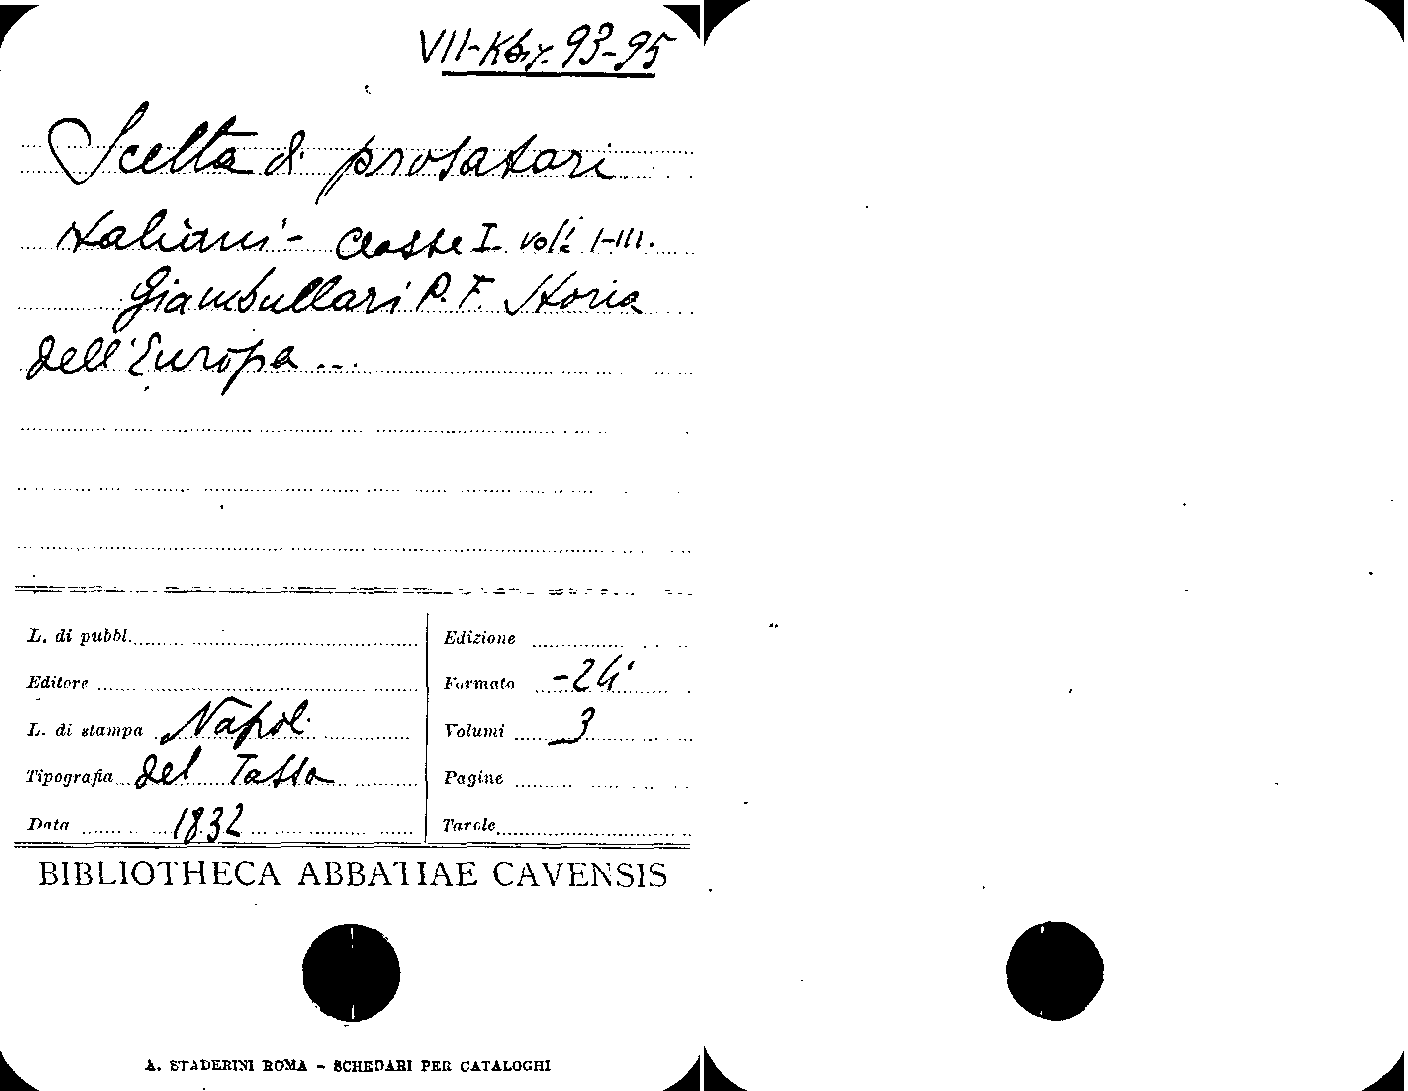 VII-Kbis. 93-95
Scelta di prosatori
italiani - Classe I. vol.i I-III.
Giambullari P. F. Storia
dell'Europa ...
L. di pubbl. Edizione
Editore Formato -24°
L. di stampa Napoli Volumi 3
Tipografia del Tasso Pagine
Data 1832 Tavole
BIBLIOTHECA ABBATIAE CAVENSIS
A. STADERINI ROMA - SCHEDARI PER CATALOGHI